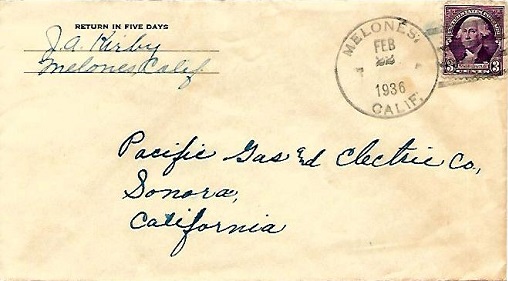 RETURN IN FIVE DAYS
J.A. Kirby
Melones, Calif.
MELONES,
FEB
1936
CALIF.
3 CENTS 3
Pacific Gas and Electric Co,
Sonora,
California